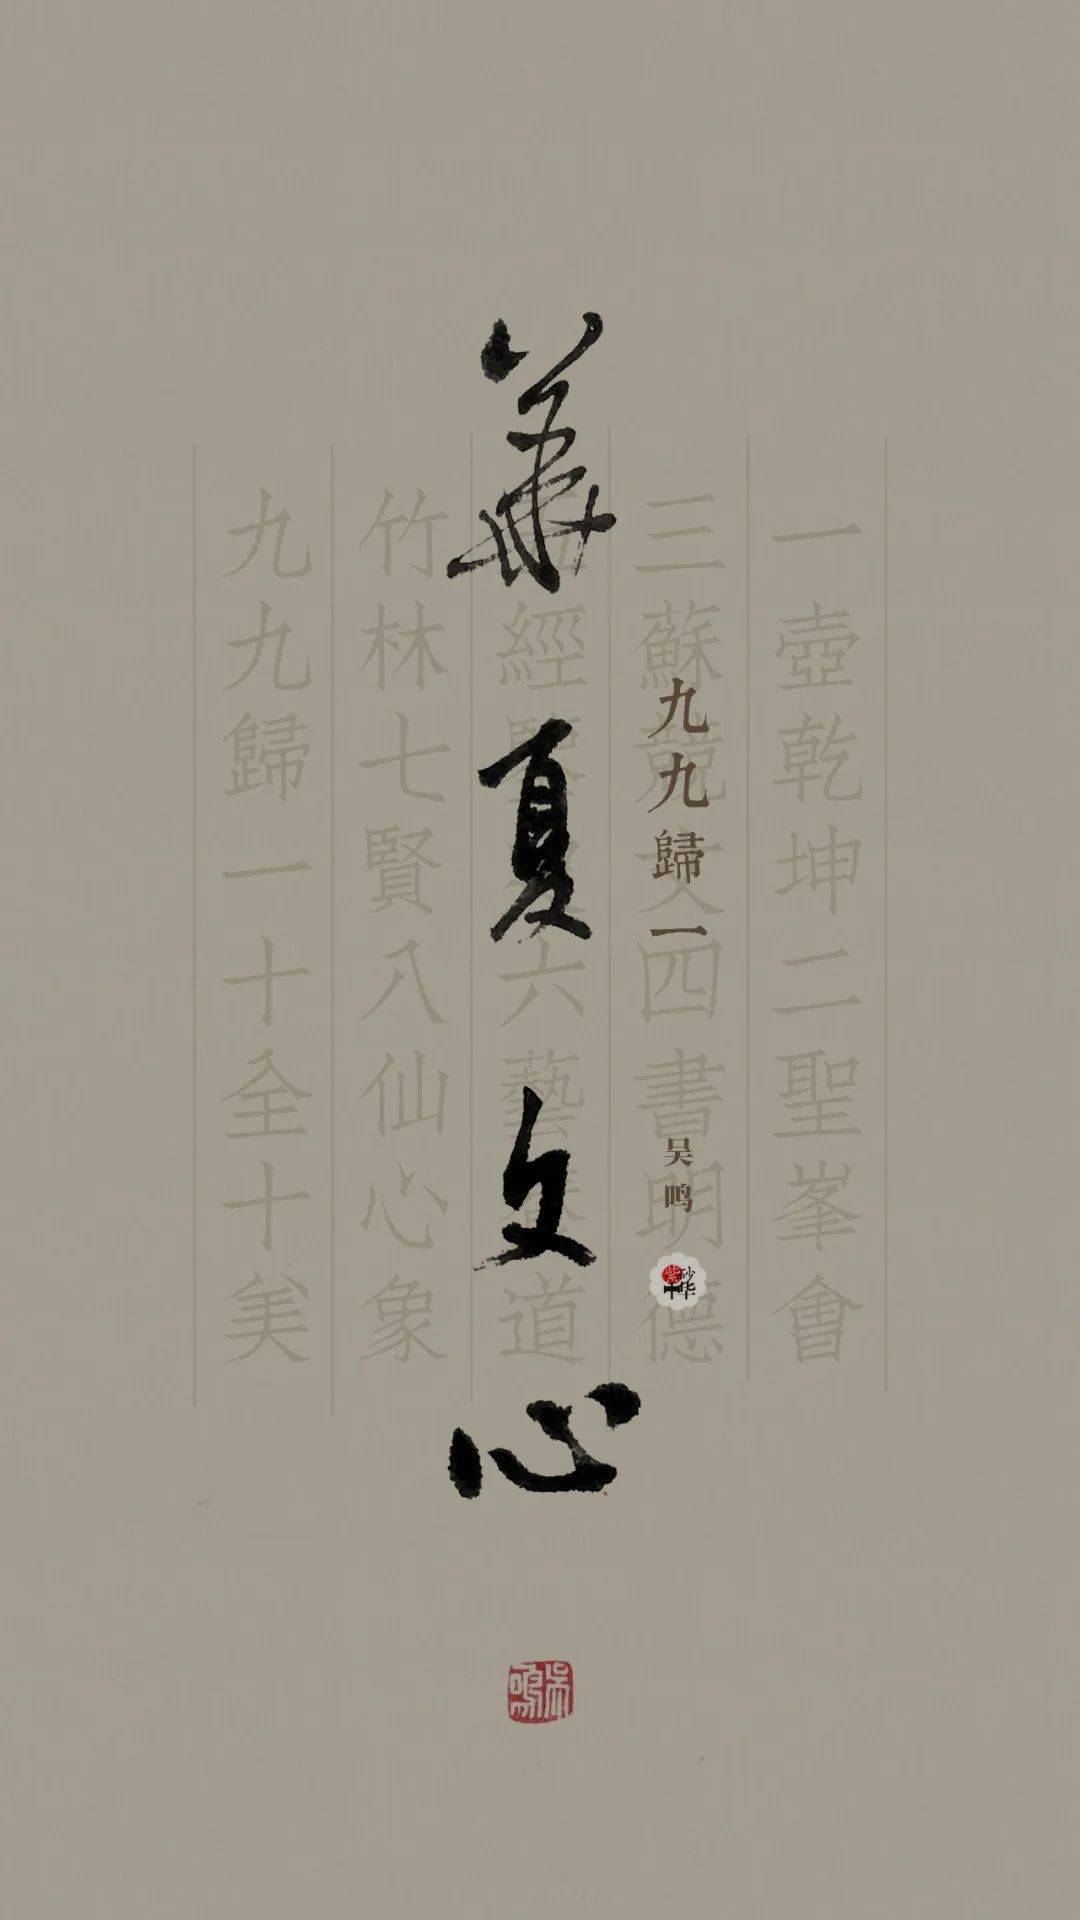 華夏文心
九九歸一
吴鸣
紫砂
中华
一壺乾坤二聖峯會
三蘇競文四書明德
經六藝道
竹林七賢八仙心象
九九歸一十全十美
吳鳴